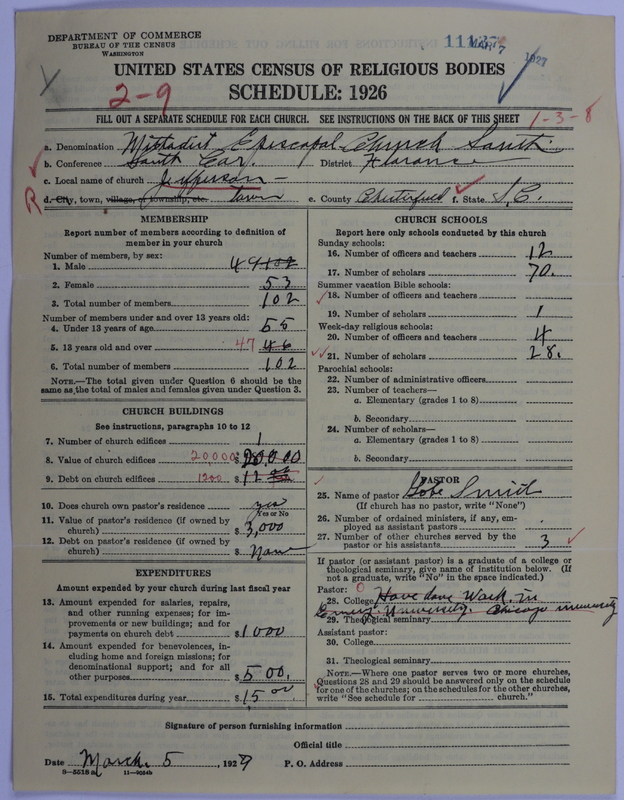 DEPARTMENT OF COMMERCE
BUREAU OF THE CENSUS
WASHINGTON
MAR 7 1927
UNITED STATES CENSUS OF RELIGIOUS BODIES
2-9
SCHEDULE: 1926
FILL OUT A SEPARATE SCHEDULE FOR EACH CHURCH. SEE INSTRUCTIONS ON THE BACK OF THIS SHEET
1-3-8
a. Denomination Methodist Episcopal Church South
b. Conference South Car. District Florence
c. Local name of church Jefferson
R
d. City, town, village, or township, etc. town e. County Chesterfield f. State S.C.
MEMBERSHIP
Report number of members according to definition of
member in your church
Number of members, by sex:
1. Male 49 102
2. Female 53
3. Total number of members 102
Number of members under and over 13 years old:
4. Under 13 years of age 55
5. 13 years old and over 47 46
6. Total number of members 102
NOTE.—The total given under Question 6 should be the
same as the total of males and females given under Question 3.
CHURCH BUILDINGS
See instructions, paragraphs 10 to 12
7. Number of church edifices 1
8. Value of church edifices 20000 $ 20,000
9. Debt on church edifices 1200 $ 12 00
10. Does church own pastor's residence yes
Yes or No
11. Value of pastor's residence (if owned by
church) $ 3,000
12. Debt on pastor's residence (if owned by
church) $ None
EXPENDITURES
Amount expended by your church during last fiscal year
13. Amount expended for salaries, repairs,
and other running expenses; for im-
provements or new buildings; and for
payments on church debt $ 1000
14. Amount expended for benevolences, in-
cluding home and foreign missions; for
denominational support; and for all
other purposes $ 500.
15. Total expenditures during year $ 15 00
CHURCH SCHOOLS
Report here only schools conducted by this church
Sunday schools:
16. Number of officers and teachers 12
17. Number of scholars 70.
Summer vacation Bible schools:
18. Number of officers and teachers
19. Number of scholars 1
Week-day religious schools:
20. Number of officers and teachers 4
21. Number of scholars 28.
Parochial schools:
22. Number of administrative officers
23. Number of teachers—
a. Elementary (grades 1 to 8)
b. Secondary
24. Number of scholars—
a. Elementary (grades 1 to 8)
b. Secondary
PASTOR
25. Name of pastor Gobe Smith
(If church has no pastor, write "None")
26. Number of ordained ministers, if any, em-
ployed as assistant pastors
27. Number of other churches served by the
pastor or his assistants 3
If pastor (or assistant pastor) is a graduate of a college or
theological seminary, give name of institution below. (If
not a graduate, write "No" in the space indicated.)
Pastor: 0
28. College Have done Work in
Emory University. Chicago university
29. Theological seminary
Assistant pastor:
30. College
31. Theological seminary
NOTE.—Where one pastor serves two or more churches,
Questions 28 and 29 should be answered only on the schedule
for one of the churches; on the schedules for the other churches,
write "See schedule for church."
Signature of person furnishing information
Official title
Date March 5, 1927 P. O. Address
9—5518a 11—9554b